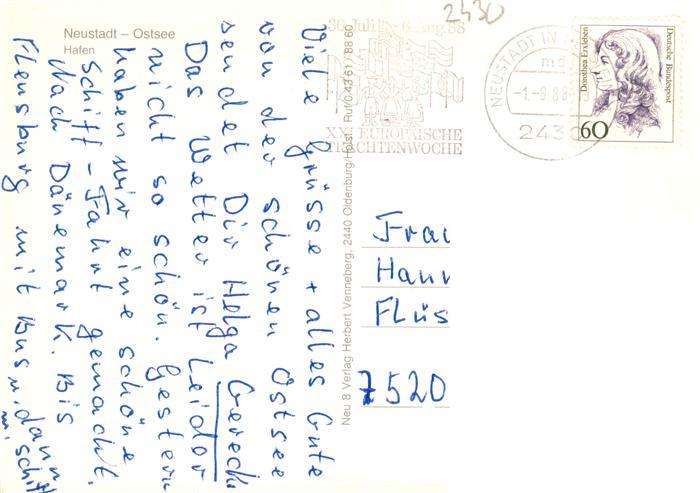 Neustadt – Ostsee
Hafen
Viele Grüsse + alles Gute
von der schönen Ostsee
sendet Dir Helga Gereck
Das Wetter ist leider
nicht so schön. Gestern
haben wir eine schöne
Schiff-Fahrt gemacht.
Nach Dänemark. Bis
Flensburg mit Bus u. dann
m. Schiff
Neu 8 Verlag Herbert Venneberg, 2440 Oldenburg/Holst. Ruf 0 43 61 / 88 60
2430
30. Juli - 6. Aug. 88
XX. EUROPÄISCHE
TRACHTENWOCHE
NEUSTADT IN
-1.-8.88
2430
Dorothea Erxleben
Deutsche Bundespost
60
Frau
Hann
Flüs
7520